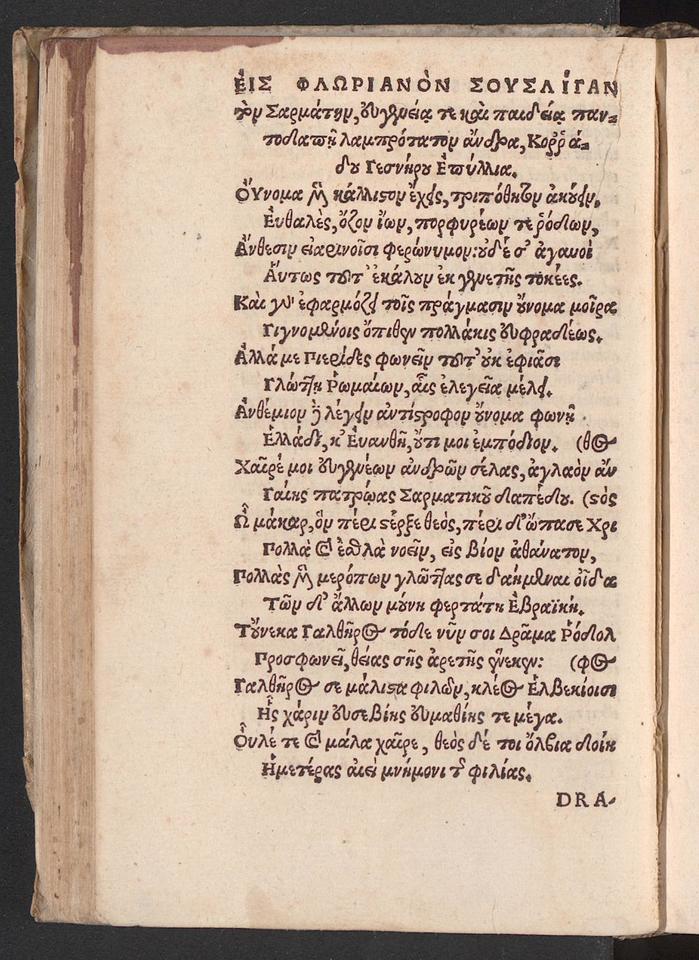 ΕΙΣ ΦΛΩΡΙΑΝῸΝ ΣΟΥΣΛΊΓΑΝ
τὸν Σαρμάτην, εὐγενείᾳ τε καὶ παιδείᾳ παν-
τοδαπῇ λαμπρότατον ἄνδρα, Κορῥά-
δου Γεσνήρου Ἐπύλλια.
Οὔνομα μὲν κάλλιστον ἔχεις, τριπόθητον ἀκούειν,
Εὐθαλὲς, ὄζον ἴων, πορφυρέων τε ῥόδων,
Ἄνθεσιν εἰαρινοῖσι φερώνυμον: οὐδέ σ' ἀγαυοὶ
Αὔτως τοῦτ' ἐκάλουν ἐκ γενετῆς τοκέες.
Καὶ γὰρ ἐφαρμόζει τοῖς πράγμασιν οὔνομα μοῖρα
Γιγνομένοις ὄπιθεν πολλάκις εὐφραδέως.
Ἀλλά με Πιερίδες φωνεῖν τοῦτ' οὐκ ἐφιᾶσι
Γλώττῃ Ῥωμαίων, αἷς ἐλεγεῖα μέλει.
Ἀνθέμιον δὲ λέγειν ἀντίστροφον οὔνομα φωνῇ
Ἑλλάδι, κ' Εὐανθῆ, οὔτι μοι ἐμπόδιον. (θος
Χαῖρέ μοι εὐγενέων ἀνδρῶν σέλας, ἀγλαὸν ἄν
Γαίης πατρῴας Σαρματικοῦ δαπέδου. (στὸς
Ὦ μάκαρ, ὃν πέρι στέρξε θεὸς, πέρι δ' ὤπασε Χρι
Πολλὰ καὶ ἐσθλὰ νοεῖν, εἰς βίον ἀθάνατον,
Πολλὰς μὲν μερόπων γλώττας σε δαήμεναι οἶδα
Τῶν δ' ἄλλων μούνη φερτάτη Ἑβραϊκή.
Τοὔνεκα Γαλθῆρος τόδε νῦν σοι Δρᾶμα Ῥόδολ
Προσφωνεῖ, θείας σῆς ἀρετῆς ἕνεκεν: (φος
Γαλθῆρος σε μάλιστα φιλῶν, κλέος Ἑλβεκίοισι
Ἧς χάριν εὐσεβίης εὐμαθίης τε μέγα.
Οὖλέ τε καὶ μάλα χαῖρε, θεὸς δέ τοι ὄλβια δοίη
Ἡμετέρας αἰεὶ μνήμονι τῆς φιλίας.
DRA-